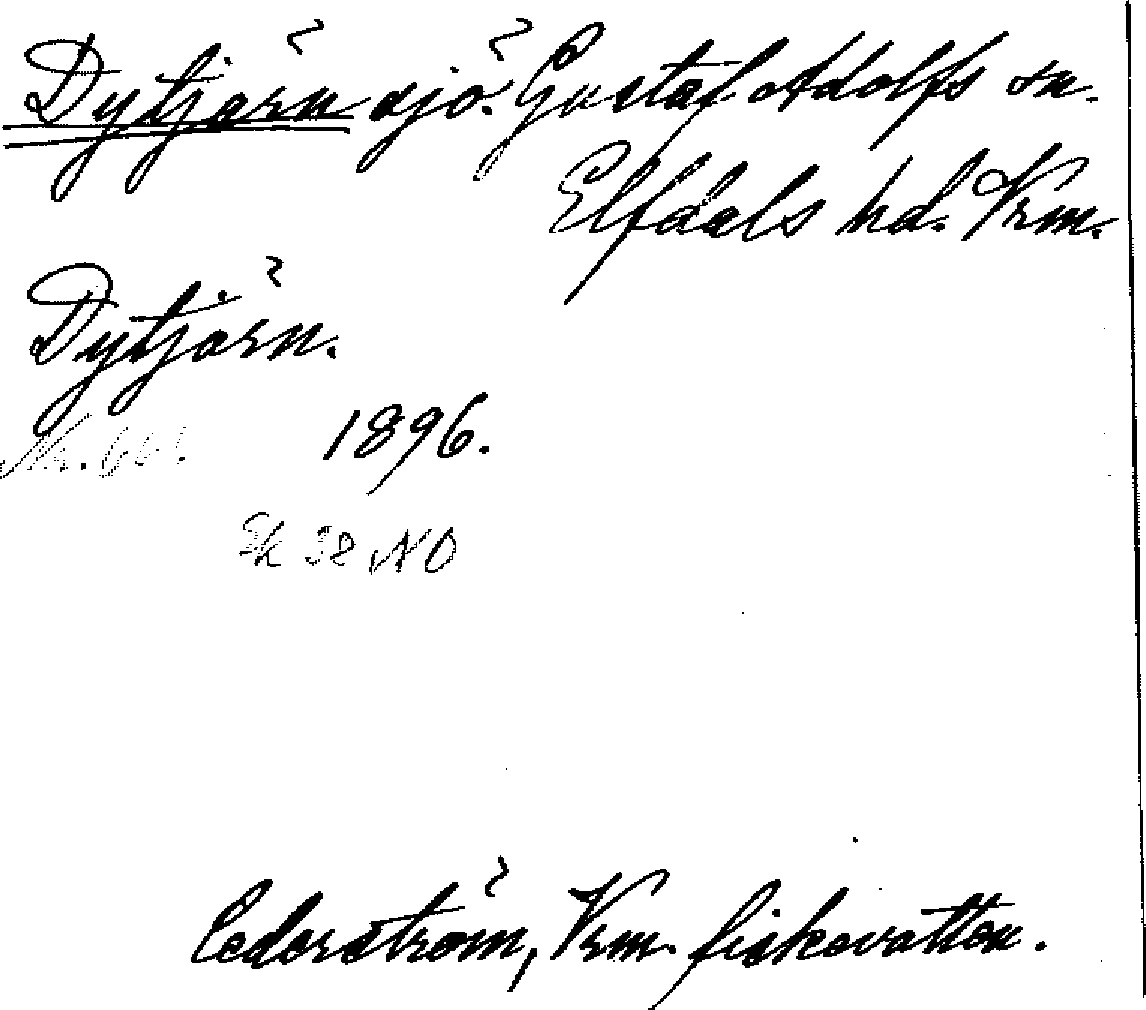 Dytjärn sjö. Gustaf Adolfs sn.
Elfdals hd. Vrm.
Dytjärn.
Nr.
1896.
Ek 38 NO
Cederström, Vrm. fiskevatten.